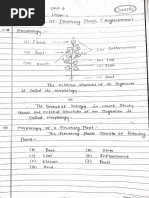 Unit-2
Lesson-5
of Flowering Plants (Angiosperms)
Morphology :-
(i) Flower
(ii) Inflorescence
(iii) Fruit
(v) Leaf
(vi) Stem
(vii) Root
The external structure of an Organism
is Called its morphology.
or
The branch of biology in which study
about the external structure of an Organism is
Called morphology.
Morphology of a Flowering Plant :-
The flowering plants consists of following
Parts :-
(A) Root
(B) Stem
(C) Leaf
(D) Inflorescence
(E) Flower
(F) Fruit
(G) Seed